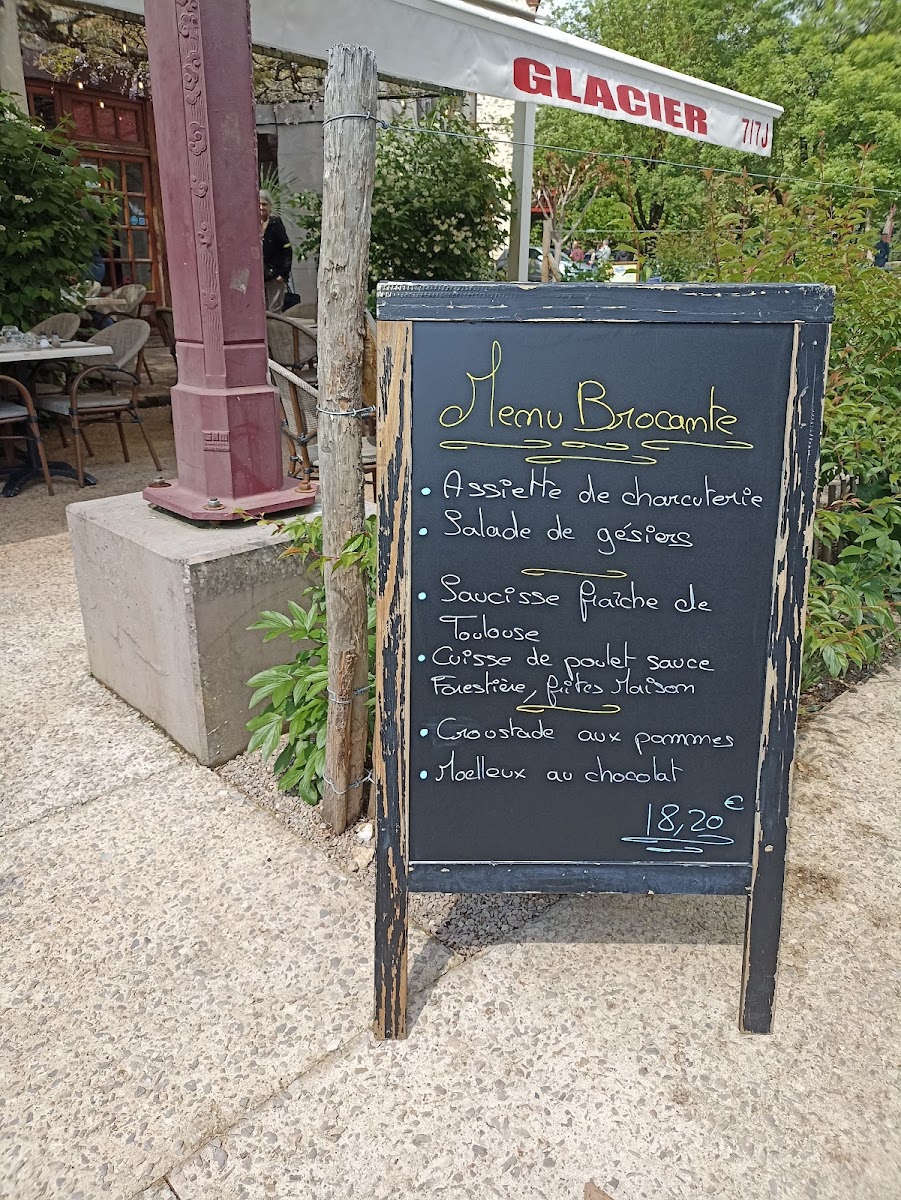 GLACIER 7/7J
Menu Brocante
• Assiette de charcuterie
• Salade de gésiers
• Saucisse fraîche de
Toulouse
• Cuisse de poulet sauce
Forestière, frites Maison
• Croustade aux pommes
• Moelleux au chocolat
18,20€